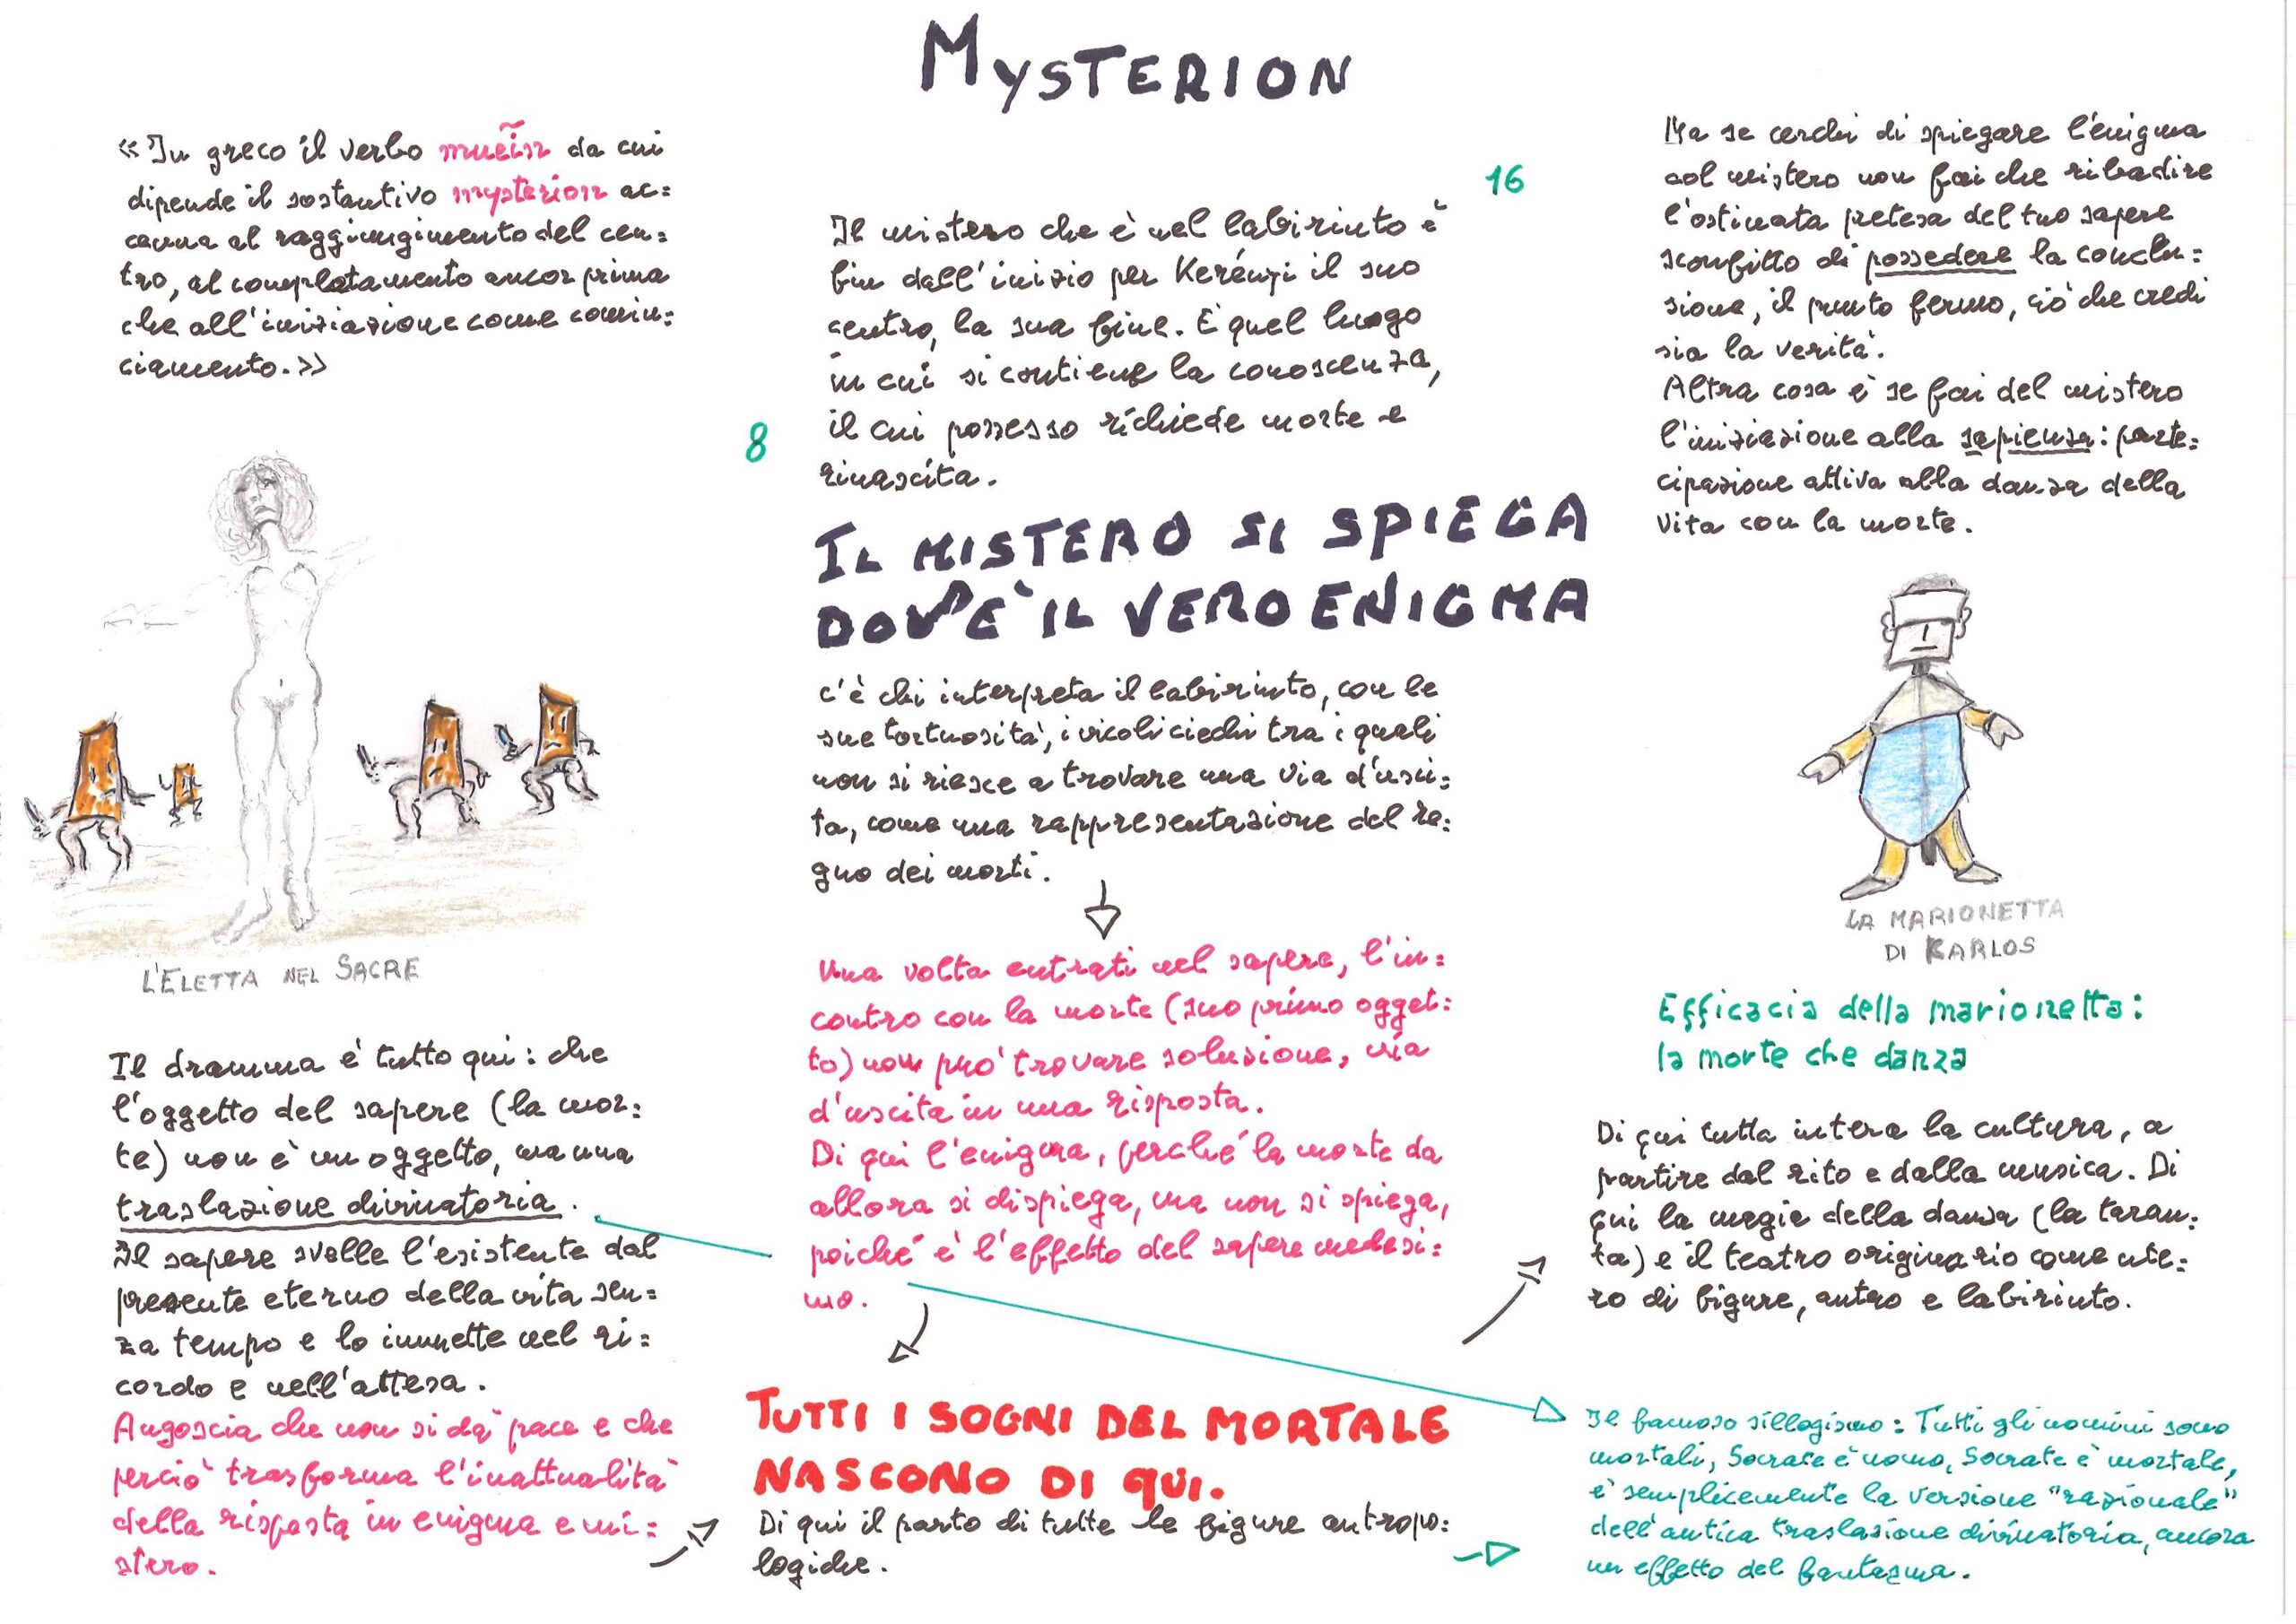 MYSTERION
«In greco il verbo mueĩn da cui
dipende il sostantivo mysterion ac=
cenna al raggiungimento del cen=
tro, al completamento ancor prima
che all'iniziazione come comin=
ciamento.»
8
L'ELETTA NEL SACRE
Il dramma è tutto qui: che
l'oggetto del sapere (la mor=
te) non è un oggetto, ma una
traslazione divinatoria.
Il sapere svelle l'esistente dal
presente eterno della vita sen=
za tempo e lo immette nel ri=
cordo e nell'attesa.
Angoscia che non si dà pace e che
perciò trasforma l'inattualità
della risposta in enigma e mi=
stero.
16
Il mistero che è nel labirinto è
fin dall'inizio per Kerényi il suo
centro, la sua fine. È quel luogo
in cui si contiene la conoscenza,
il cui possesso richiede morte e
rinascita.
IL MISTERO SI SPIEGA
DOV'È IL VERO ENIGMA
c'è chi interpreta il labirinto, con le
sue tortuosità, i vicoli ciechi tra i quali
non si riesce a trovare una via d'usci=
ta, come una rappresentazione del re=
gno dei morti.
Una volta entrati nel sapere, l'in=
contro con la morte (suo primo ogget=
to) non può trovare soluzione, via
d'uscita in una risposta.
Di qui l'enigma, perché la morte da
allora si dispiega, ma non si spiega,
poiché è l'effetto del sapere medesi=
mo.
TUTTI I SOGNI DEL MORTALE
NASCONO DI QUI.
Di qui il parto di tutte le figure antropo=
logiche.
Ma se cerchi di spiegare l'enigma
col mistero non fai che ribadire
l'ostinata pretesa del tuo sapere
sconfitto di possedere la conclu=
sione, il punto fermo, ciò che credi
sia la verità.
Altra cosa è se fai del mistero
l'iniziazione alla sapienza: parte=
cipazione attiva alla danza della
vita con la morte.
LA MARIONETTA
DI KARLOS
Efficacia della marionetta:
la morte che danza
Di qui tutta intera la cultura, a
partire dal rito e dalla musica. Di
qui la magia della danza (la taran=
ta) e il teatro originario come ute=
ro di figure, antro e labirinto.
Il famoso sillogismo: Tutti gli uomini sono
mortali, Socrate è uomo, Socrate è mortale,
è semplicemente la versione "razionale"
dell'antica traslazione divinatoria, ancora
un effetto del fantasma.